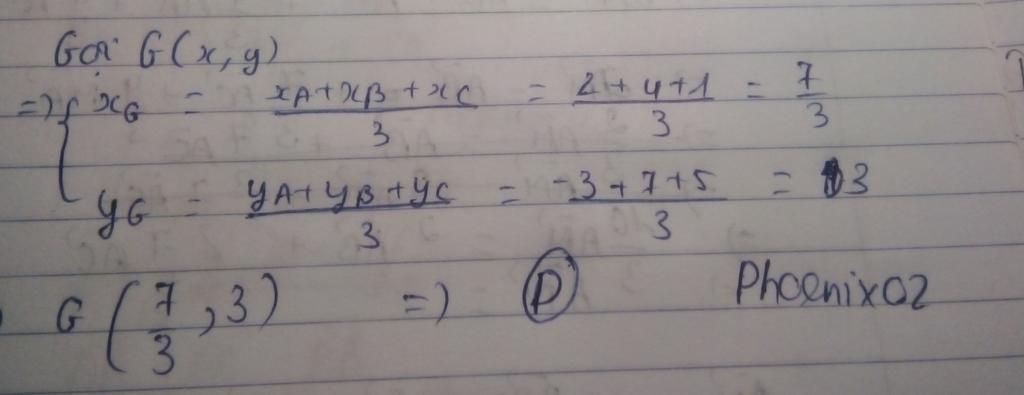 Gọi G(x, y)
=> { xG = (xA + xB + xC)/3 = (2 + 4 + 1)/3 = 7/3
yG = (yA + yB + yC)/3 = (-3 + 7 + 5)/3 = 3
G(7/3, 3) => D Phoenix02